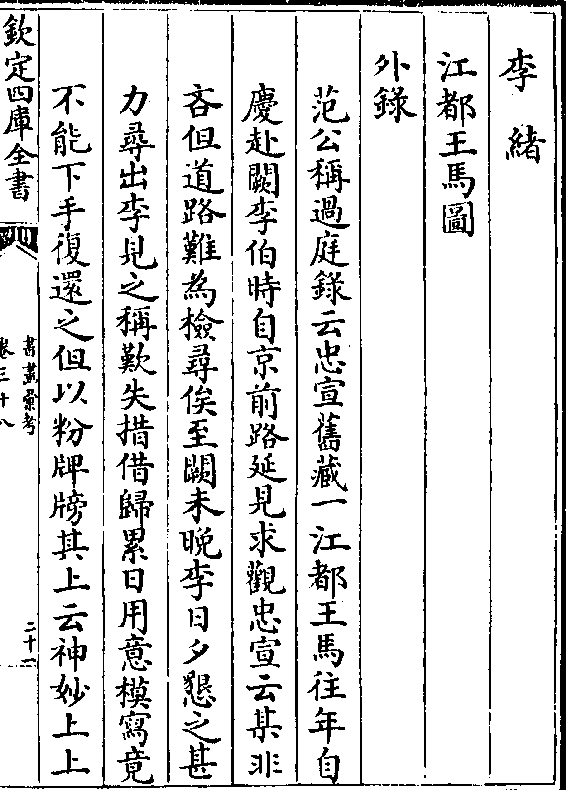 李緒
江都王馬圖
外錄
范公稱過庭錄云忠宣舊藏一江都王馬往年自
慶赴闕李伯時自京前路延見求觀忠宣云某非
吝但道路難為檢尋俟至闕未晚李日夕懇之甚
力尋出李見之稱歎失措借歸累日用意模寫竟
不能下手復還之但以粉牌牓其上云神妙上上
欽定四庫全書
書畫彙考
卷三十八